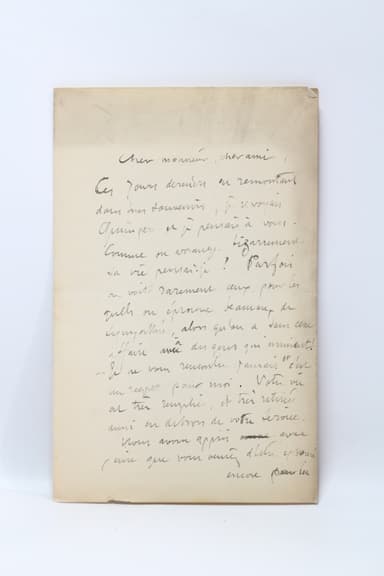 Cher monsieur, cher ami,
Ces jours derniers en remontant
dans mes souvenirs, je revoyais
Quimper et je pensais à vous.
Comme on arrange bizarrement
sa vie pensai-je ! Parfois
on voit rarement ceux pour les
quels on éprouve beaucoup de
sympathie, alors qu'on a sans cesse
affaire avec des gens qui ennuient!
Je ne vous rencontre jamais et c'est
un regret pour moi. Votre vie
est très remplie, et très retirée
aussi en dehors de votre service.
Nous avons appris avec
joie que vous veniez d'être
encore